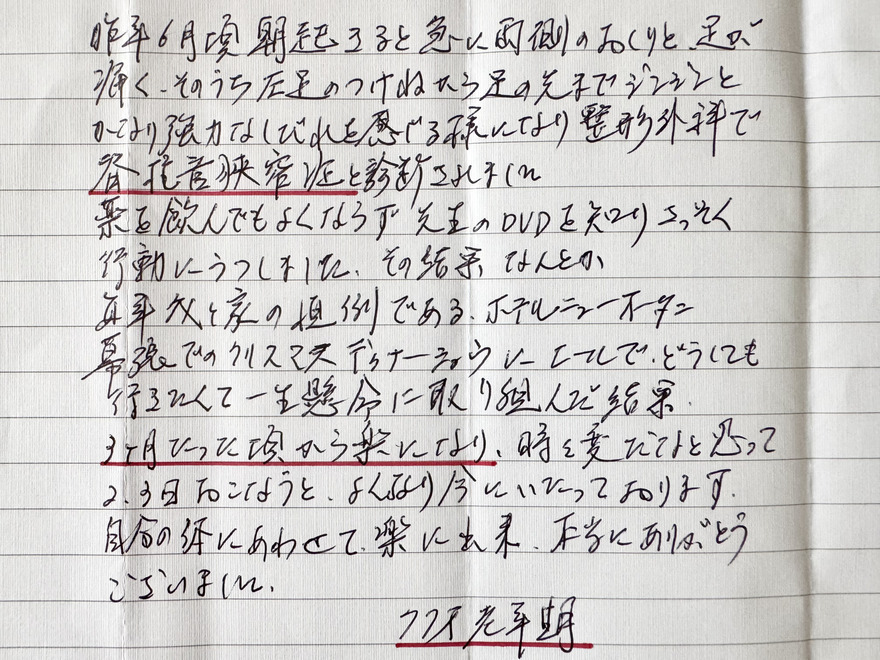 昨年6月頃朝起きると急に両側のおしりと、足が
痛く、そのうち左足のつけねから足の先までジンジンと
かなり強力なしびれを感じる様になり整形外科で
脊柱管狭窄症と診断されました
薬を飲んでもよくならず先生のDVDを知りさっそく
行動にうつしました、その結果なんとか
毎年 我が家の恒例である、ホテルニューオータニ
幕張でのクリスマスディナーショウに行くので、どうしても
行きたくて一生懸命に取り組んだ結果、
3ヶ月たった頃から楽になり、時々変だなと思って
2、3日おこなうと、よくなり今にいたっております。
自分の体にあわせて、楽に出来、本当にありがとう
ございました。
77才 老年期